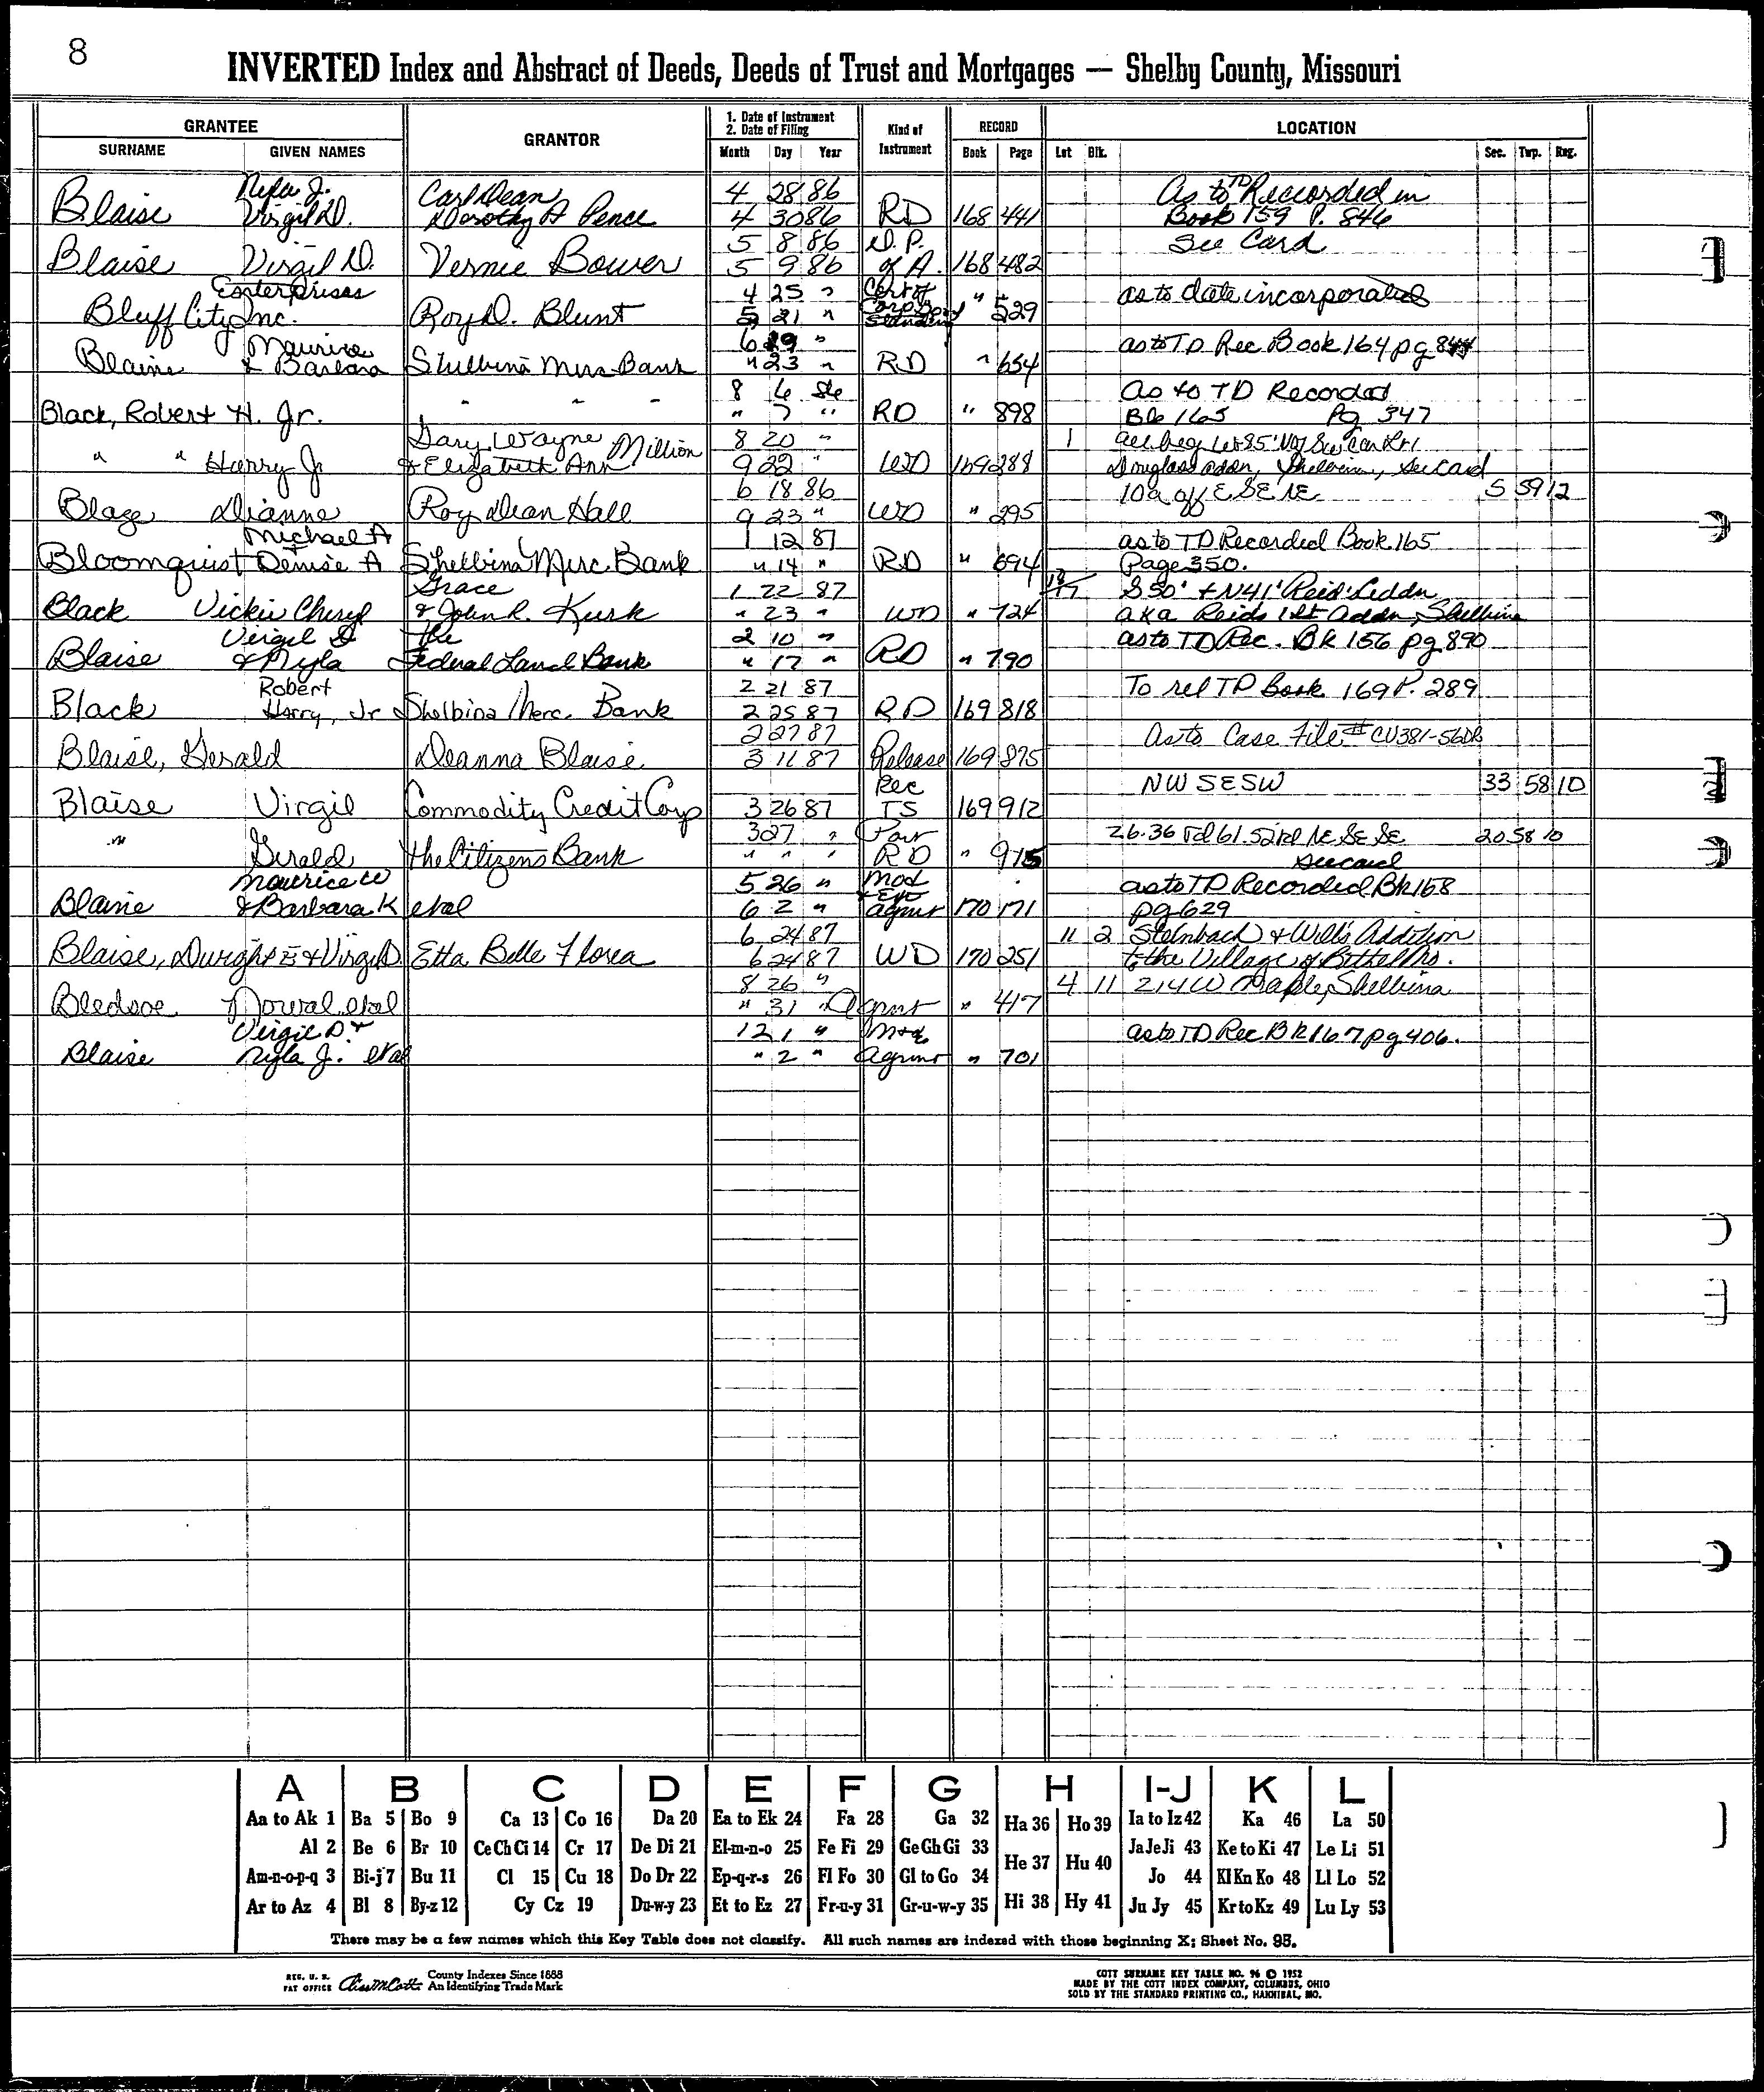 8
INVERTED Index and Abstract of Deeds, Deeds of Trust and Mortgages — Shelby County, Missouri
GRANTEE
SURNAME GIVEN NAMES
GRANTOR
1. Date of Instrument
2. Date of Filing
Month Day Year
Kind of Instrument
RECORD
Book Page
LOCATION
Lot Blk. Sec. Twp. Rng.
J. Carl Dean 4 28 86 As to TD Recorded in
Blaise Virgil D. & Dorothy A Pence 4 30 86 RD 168 441 Book 159 P. 846
5 8 86 D. P. See Card
Blaise Virgil D. Vernie Bower 5 9 86 of A. 168 482
Enterprises 4 25 " Cert of as to date incorporated
Bluff City Inc. Roy D. Blunt 5 21 " Corp Good Standing " 529
Maurice 6 19 " as to TD Rec Book 164 pg 844
Blaine & Barbara Shelbina Merc Bank " 23 " RD " 654
8 6 86 As to TD Recorded
Black, Robert H. Jr. " " " " 7 " RD " 898 Bk 165 Pg 347
Gary Wayne Million 8 20 " 1
" " Harry Jr & Elizabeth Ann 9 22 " WD 169 288 Douglass addn, Shelbina, see card
6 18 86 10a off E SE NE 5 59 12
Blaze Dianne Roy Dean Hall 9 23 " WD " 295
Michael A 1 12 87 as to TD Recorded Book 165
Bloomquist Denise A Shelbina Merc. Bank " 14 " RD " 694 Page 350.
Grace 1 22 87 S 50' + N 41' Reid's Addn
Black Vickie Cheryl & John R. Kusk " 23 " WD " 724 aka Reids 1st Addn, Shelbina
Virgil D The 2 10 " as to TD Rec. Bk 156 pg 890
Blaise & Nyla Federal Land Bank " 17 " RD " 790
Robert 2 21 87 To rel TD Book 169 P. 289
Black Harry, Jr Shelbina Merc. Bank 2 25 87 RD 169 818
2 27 87 As to Case File # CV381-56DR
Blaise, Gerald Deanna Blaise 3 11 87 Release 169 875
Rec NW SE SW 33 58 10
Blaise Virgil Commodity Credit Corp 3 26 87 TS 169 912
3 27 " Par 26.36 rd 61.52 rd NE SE SE 20 58 10
" Gerald The Citizens Bank " " " RD " 915 see card
Maurice W 5 26 " Mod as to TD Recorded Bk 168
Blaine & Barbara K etal 6 2 " + Ext agmt 170 171 pg 629
6 24 87 11 2 Steinbach & Will's Addition
Blaise, Dwight E & Virgil D Etta Belle Florea 6 24 87 WD 170 251 to the Village of Bethel Mo.
8 26 " 4 11 214 W Maple, Shelbina
Bledsoe Nowal etal " 31 " Agmt " 417
Virgil D & 12 1 " Mod as to TD Rec Bk 167 pg 406.
Blaise Nyla J. etal " 2 " Agmt " 701
A B C D E F G H I-J K L
Aa to Ak 1 Ba 5 Bo 9 Ca 13 Co 16 Da 20 Ea to Ek 24 Fa 28 Ga 32 Ha 36 Ho 39 Ia to Iz 42 Ka 46 La 50
Al 2 Be 6 Br 10 Ce Ch Ci 14 Cr 17 De Di 21 El-m-n-o 25 Fe Fi 29 Ge Gh Gi 33 He 37 Hu 40 Ja Je Ji 43 Ke to Ki 47 Le Li 51
Am-n-o-p-q 3 Bi-j 7 Bu 11 Cl 15 Cu 18 Do Dr 22 Ep-q-r-s 26 Fl Fo 30 Gl to Go 34 Jo 44 Kl Kn Ko 48 Ll Lo 52
Ar to Az 4 Bl 8 By-z 12 Cy Cz 19 Du-w-y 23 Et to Ez 27 Fr-u-y 31 Gr-u-w-y 35 Hi 38 Hy 41 Ju Jy 45 Kr to Kz 49 Lu Ly 53
There may be a few names which this Key Table does not classify. All such names are indexed with those beginning X; Sheet No. 95.
REG. U. S. PAT OFFICE
County Indexes Since 1888
An Identifying Trade Mark
COTT SURNAME KEY TABLE NO. 96 © 1952
MADE BY THE COTT INDEX COMPANY, COLUMBUS, OHIO
SOLD BY THE STANDARD PRINTING CO., HANNIBAL, MO.